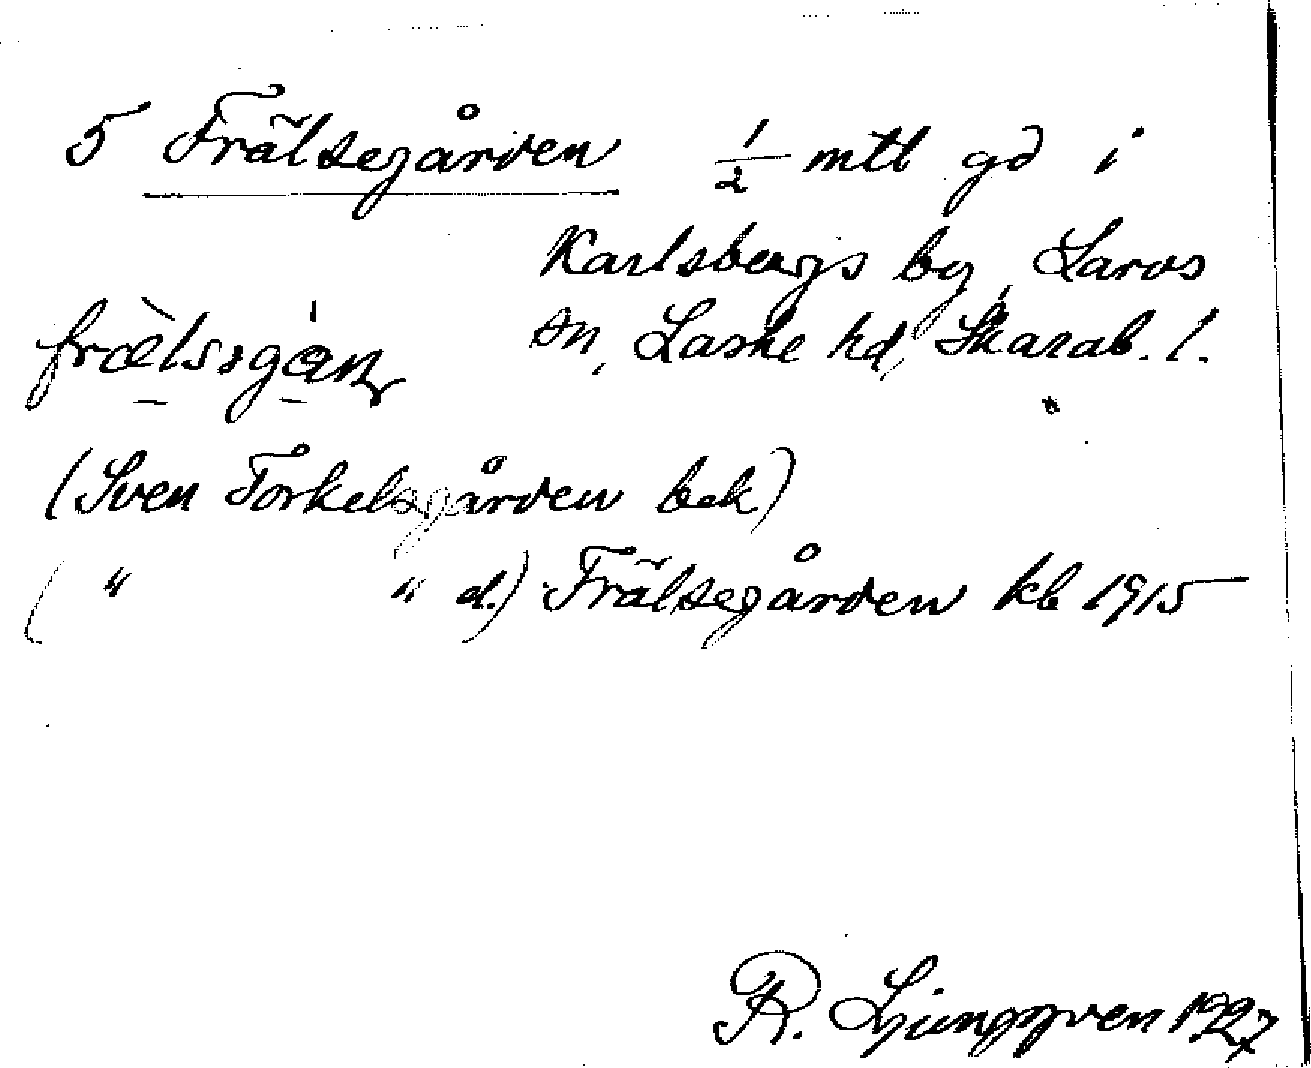 5 Frälsegården 1/2 mtl gd i
Karlsbergs by, Larvs
sn, Laske hd, Skarab. l.
frælsəgan
(Sven Torkelsgården bek)
( " " d.) Frälsegården kb 1915
R. Ljunggren 1927